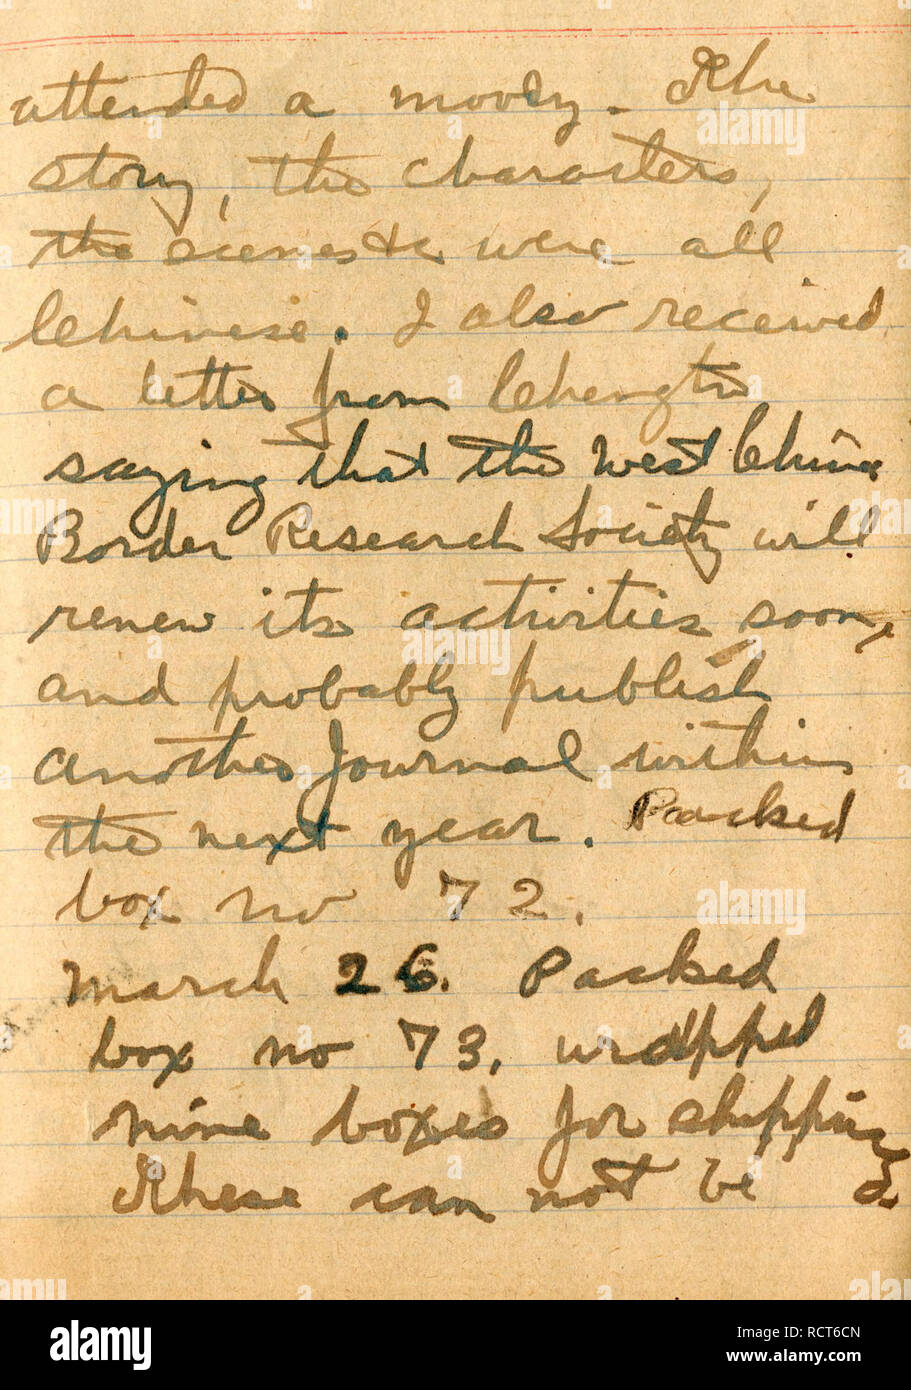 attended a movey. The
story, the characters,
the scenes &c were all
Chinese. I also received
a letter from Chengtu
saying that the West China
Border Research Society will
renew its activities soon,
and probably publish
another Journal within
the next year. Packed
box no 72.
March 26. Packed
box no 73, wrapped
nine boxes for shipping.
These can not be
alamy
Image ID: RCT6CN
www.alamy.com